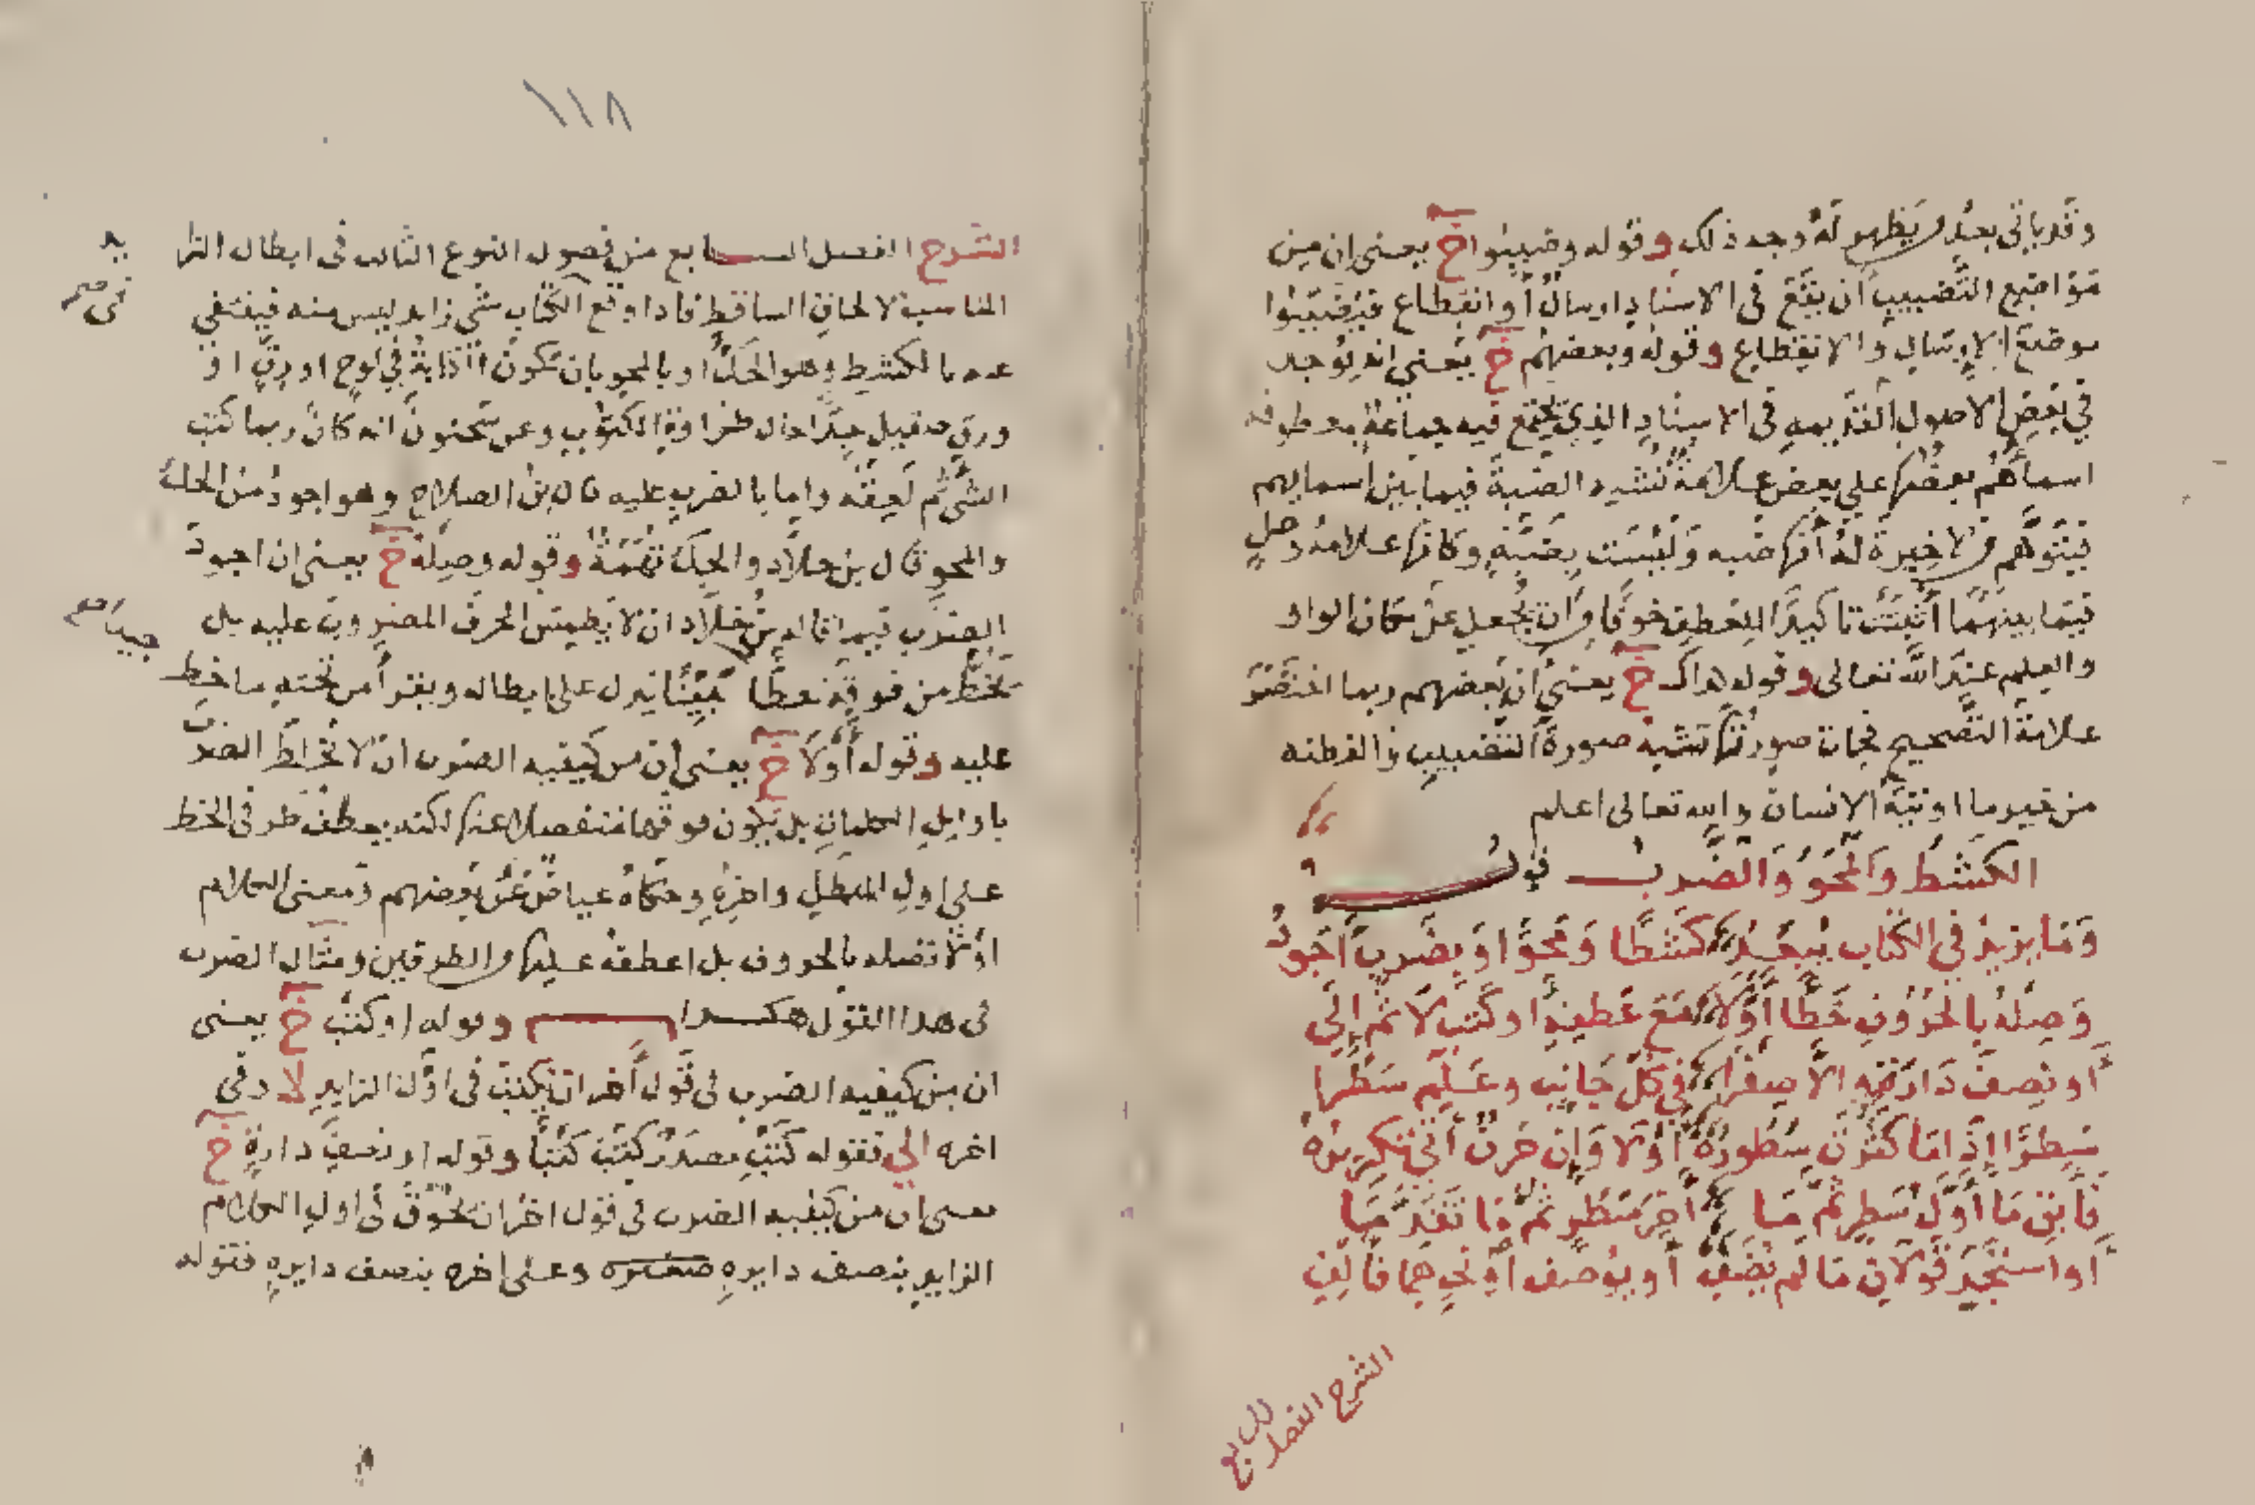 وقد ياتي بعده من يظهر له وجه ذلك وقوله وضببوا خ يعني ان من
مواضع التضبيب ان يقع في الاسناد ارسال او انقطاع فيضببوا
موضع الارسال والانقطاع وقوله وبعضهم خ يعني انه يوجد
في بعض الاصول القديمه في الاسناد الذي يجتمع فيه جماعة معطوفه
اسماؤهم بعضها على بعض علامة تشبه الضبة فيما بين اسمايهم
فيتوهم من لا خبرة له انها ضبه وليست بضبة وكانها علامة وصل
فيما بينهما اثبتت تاكيدا للعطف خوفا من ان يجعل عن مكان الواو
والعلم عند الله تعالى وقوله كذاك خ يعني ان بعضهم ربما اختصر
علامة التصحيح فجات صورتها تشبه صورة التضبيب والفطنه
من خير ما اوتيه الانسان والله تعالى اعلم
الكشط والمحو والضرب
وما يزيد في الكتاب يبعد كشطا ومحوا وبضرب اجود
وصله بالحروف خطا او لا مع عطفه او كتب لا ثم الى
او نصف دارة والا صفرا في كل جانب وعلم سطرا
سطرا اذا ما كثرت سطوره اولا وان حرف اتى تكريره
فابق ما اول سطر ثم ما اخر سطر ثم ما تقدما
او استجد قولان ما لم يضف او يوصف او نحوهما فالف
الشرح الفصل السابع
١١٨
الشرح الفصل السابع من فصول النوع الثالث في ابطال الزا
المناسبة لالحاق الساقط فاذا وقع الكتاب شي زايد ليس منه فينفى
عنه بالكشط وهو الحك او بالمحو بان تكون الكتابة في لوح او رق او
ورق صقيل جدا حال طراوة المكتوب وعن سحنون انه كان ربما كتب
الشي ثم لعقه واما بالضرب عليه قال بن الصلاح وهو اجود من الحك
والمحو قال بن خلاد والحك تهمة وقوله وصله خ يعني ان اجود
الضرب فيما قاله بن خلاد ان لا يطمس الحرف المضروب عليه بل
يخط من فوقه خطا بينا يدل على ابطاله ويقرا من تحته ما خط
عليه وقوله اولا خ يعني ان من كيفيه الضرب ان لا تخلط الضرب
باوايل الكلمات بل يكون فوقها منفصلا عنها لكنه يعطف طرفي الخط
على اول المبطل واخره وحكاه عياض عن بعضهم ومعنى الكلام
او لا تصله بالحروف بل اعطفه عليها من الطرفين ومثال الضرب
في هذا القول هكذا وقوله او كتب خ يعني
ان من كيفيه الضرب في قول اخر ان يكتب في اول الزايد لا وفي
اخره الى فقوله كتب مصدر كتب كتبا وقوله او نصف دارة خ
يعني ان من كيفيه الضرب في قول اخر ان يحوق في اول الكلام
الزايد بنصف دايره صغيره وعلى اخره بنصف دايرة فقوله